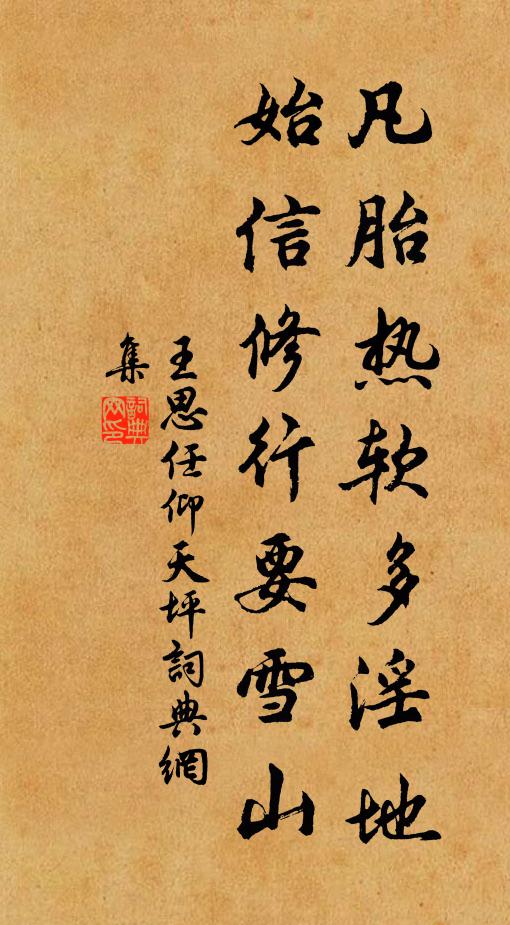 凡胎热软多淫地
始信修行要雪山
王思任仰天坪詞典網
集
詞典網印